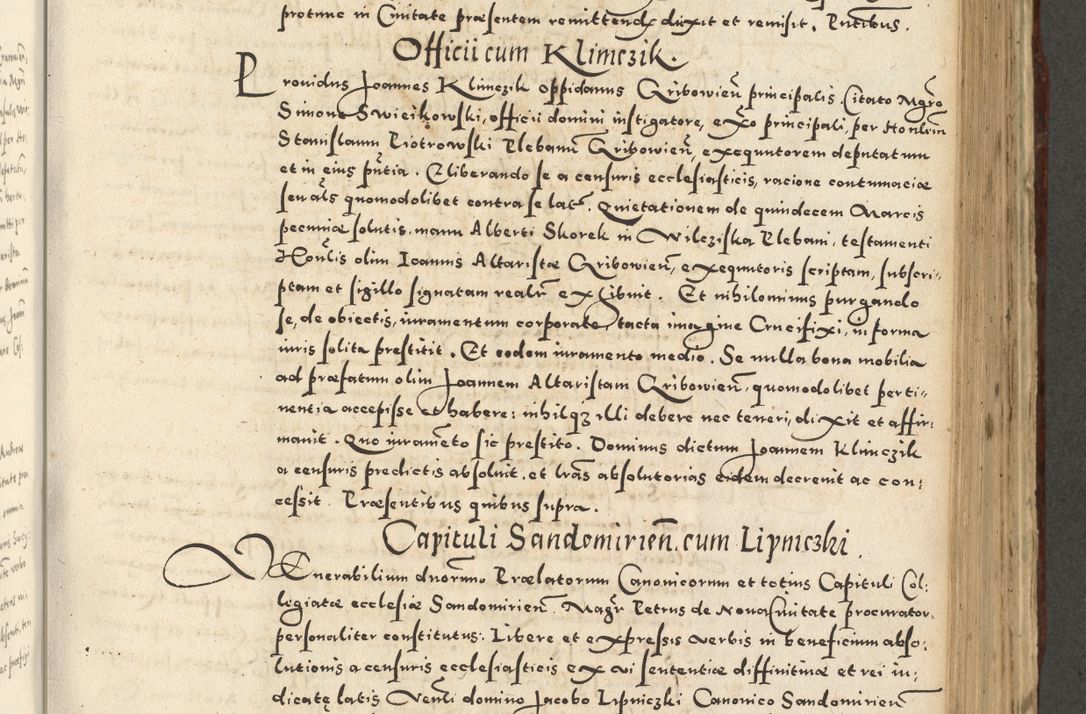 protunc in Civitate præsentem remittend dixit et remisit. Pntibus.
Officii cum Klimczik.
Providus Joannes Klimczik oppidanus Gribowien principalis. Citato Mgro
Simone Swieikowski, officii domini instigatore, ex principali, per Honlem
Stanislaum Piotrowski Plebanum Gribowien, exequutorem deputatum
et in eius pntia. Cliberando se a censuris ecclesiasticis, racione contumaciæ
seu als quomodolibet contra se lat. Quietationem de quindecem Marcis
pecuniæ solutis, manu Alberti Skorek in Wilcziska Plebani, testamenti
Honlis olim Joannis Altaristæ Gribowien, exequutoris scriptam, subscri-
ptam et sigillo signatam realr exhibuit. Et nihilominus purgando
se, de obiectis, iuramentum corporale, tacta imagine Crucifixi, in forma
iuris solita prestitit. Et eodem iuramento medio. Se nulla bona mobilia
ad præfatum olim Joannem Altaristam Gribowien, quomodolibet perti-
nentia accepisse et habere: nihilqz illi debere nec teneri, dixit et affir-
mavit. Quo iuramēto sic prestito. Dominus dictum Joannem Klimczik
a censuris predictis absolvit, et lras absolutorias eidem decrevit ac con-
cessit. Præsentibus quibus supra.
Capituli Sandomirien. cum Lipniczki.
Venerabilium dnorum Prælatorum Canonicorum et totius Capituli Col-
legiatæ ecclesiæ Sandomirien. Magr Petrus de Nova Civitate procurator
personaliter constitutus. Libere et expressis verbis in beneficium abso-
lutionis a censuris ecclesiasticis ex vi sententiæ diffinitivæ et rei iu-
dicatę latis Venli domino Jacobo Lipniczki Canonico Sandomirien